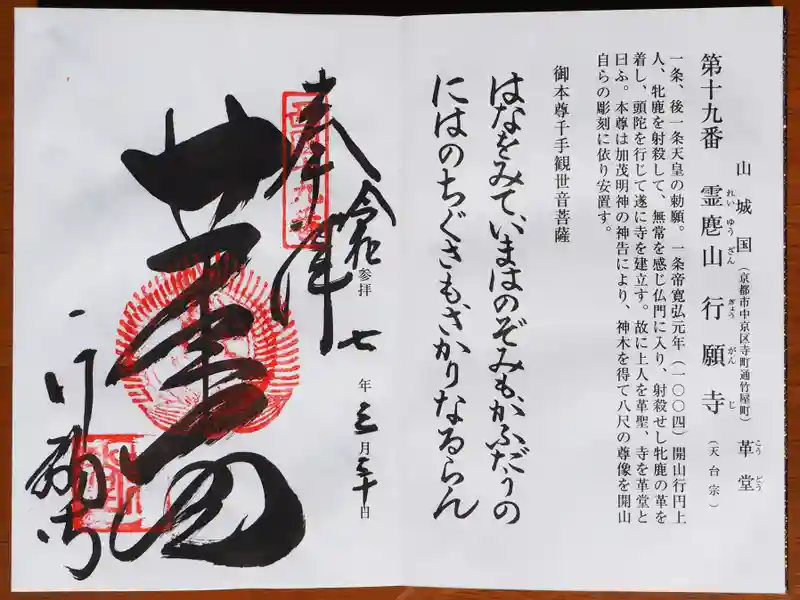 山城国(京都市中京区寺町通竹屋町)革堂
こうどう
第十九番 霊麀山 行願寺(天台宗)
れいゆうざん ぎょうがんじ
一条、後一条天皇の勅願。一条帝寛弘元年(一〇〇四)開山行円上
人、牝鹿を射殺して、無常を感じ仏門に入り、射殺せし牝鹿の革を
着し、頭陀を行じて遂に寺を建立す。故に上人を革聖、寺を革堂と
曰ふ。本尊は加茂明神の神告により、神木を得て八尺の尊像を開山
自らの彫刻に依り安置す。
御本尊千手観世音菩薩
はなをみていまはのぞみもかふだうの
にはのちぐさもさかりなるらん
令和七年三月三十日
参拝
奉拝
革堂
行願寺